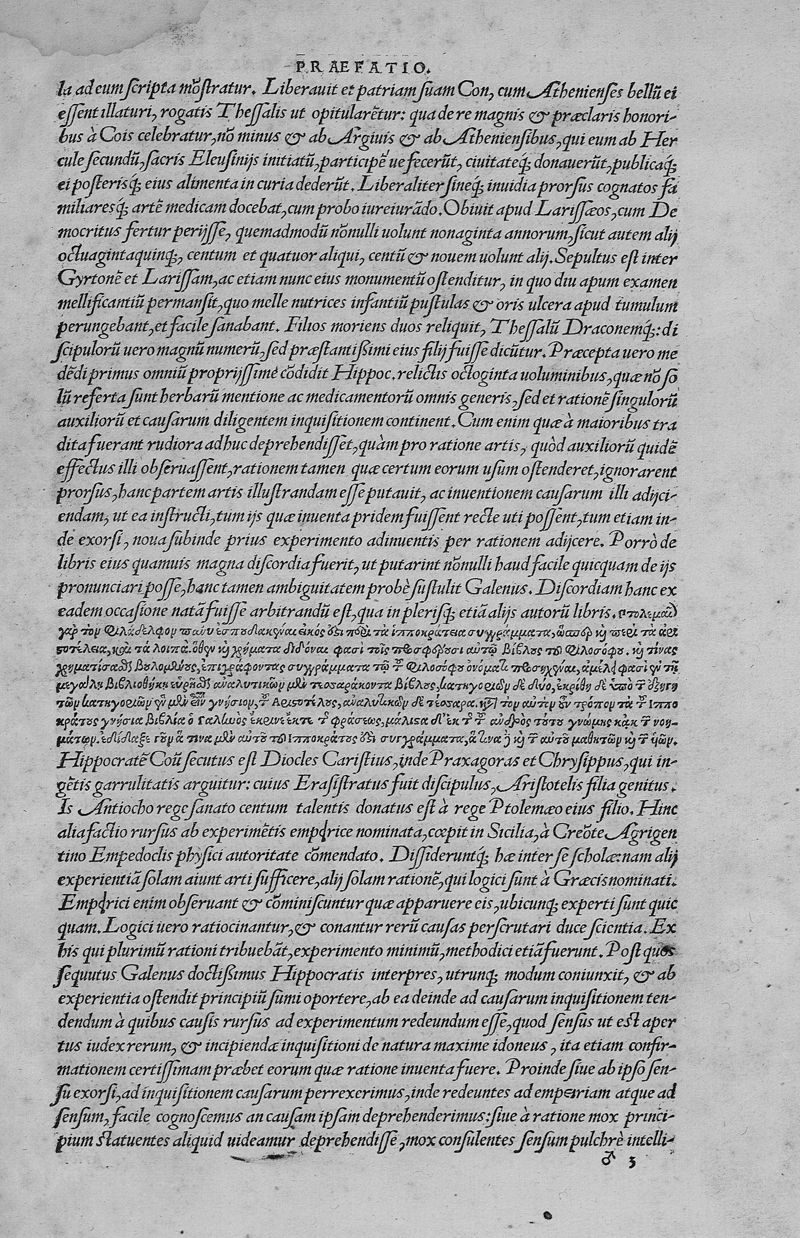 PRAEFATIO.
la ad eum scripta mõstratur. Liberauit et patriam suam Con, cum Athenienses bellũ ei
essent illaturi, rogatis Thessalis ut opitularẽtur: qua de re magnis & præclaris honori-
bus à Cois celebratur, nõ minus & ab Argiuis & ab Atheniensibus, qui eum ab Her
cule secundũ, sacris Eleusinijs initiatũ, participẽ ue fecerũt, ciuitateq; donauerũt, publicaq;
ei posterisq; eius alimenta in curia dederũt. Liberaliter sineq; inuidia prorsus cognatos fa
miliaresq; artẽ medicam docebat, cum probo iureiurãdo. Obiuit apud Larissæos, cum De
mocritus fertur perijsse, quemadmodũ nõnulli uolunt nonaginta annorum, sicut autem alij
octuagintaquinq;, centum et quatuor aliqui, centũ & nouem uolunt alij. Sepultus est inter
Gyrtonẽ et Larissam, ac etiam nunc eius monumentũ ostenditur, in quo diu apum examen
mellificantiũ permansit, quo melle nutrices infantiũ pustulas & oris ulcera apud tumulum
perungebant, et facile sanabant. Filios moriens duos reliquit, Thessalũ Draconemq;: di
scipulorũ uero magnũ numerũ, sed præstantissimi eius filij fuisse dicũtur. Præcepta uero me
dẽdi primus omniũ proprijssimẽ cõdidit Hippoc. relictis octoginta uoluminibus, quæ nõ so
lũ referta sunt herbarũ mentione ac medicamentorũ omnis generis, sed et rationẽ singulorũ
auxiliorũ et causarum diligentem inquisitionem continent. Cum enim quæ à maioribus tra
dita fuerant rudiora adhuc deprehendisset, quàm pro ratione artis, quòd auxiliorũ quidẽ
effectus illi obseruassent, rationem tamen quæ certum eorum usum ostenderet, ignorarent
prorsus, hanc partem artis illustrandam esse putauit, ac inuentionem causarum illi adijci-
endam, ut ea instructi, tum ijs quæ inuenta pridem fuissent recte uti possent, tum etiam in-
de exorsi, noua subinde prius experimento adinuentis per rationem adijcere. Porrò de
libris eius quamuis magna discordia fuerit, ut putarint nõnulli haud facile quicquam de ijs
pronunciari posse, hanc tamen ambiguitatem probè sustulit Galenus. Discordiam hanc ex
eadem occasione natã fuisse arbitrandũ est, qua in plerisq; etiã alijs autorũ libris.
γαρ τον φιλάδελφον εἰκὸς τὰ ἱπποκράτεια συγγράμματα,
τὰ λοιπά. χρήματα διδόναι φασὶ τοῖς αὐτῷ βίβλους τοῦ φιλοσόφου.
ἐπιγράφοντας συγγράμματα τῷ φιλοσόφου φασὶ
μεγάλῃ βιβλιοθήκῃ τεσσαράκοντα βίβλους, δύο,
γνήσιον, τέσσαρα. τρόπον τὰ Ἱππο
κράτους γνήσια βιβλία ὁ γαληνὸς φράσεως, γνώμης
τινα μὲν αὐτοῦ Ἱπποκράτους συγγράμματα,
Hippocratẽ Coũ secutus est Diocles Caristius, inde Praxagoras et Chrysippus, qui in-
gẽtis garrulitatis arguitur: cuius Erasistratus fuit discipulus, Aristotelis filia genitus.
Is Antiocho rege sanato centum talentis donatus est à rege Ptolemæo eius filio. Hinc
alia factio rursus ab experimẽtis empirice nominata, cœpit in Sicilia, à Creõte Agrigen
tino Empedoclis physici autoritate cõmendato. Dissideruntq; hæ inter se scholæ: nam alij
experientiã solam aiunt arti sufficere, alij solam rationẽ, qui logici sunt à Græcis nominati.
Empirici enim obseruant & cõminiscuntur quæ apparuere eis, ubicunq; experti sunt quic
quam. Logici uero ratiocinantur, & conantur rerũ causas perscrutari duce scientia. Ex
his qui plurimũ rationi tribuebãt, experimento minimũ, methodici etiã fuerunt. Post quos
sequutus Galenus doctissimus Hippocratis interpres, utrunq; modum coniunxit, & ab
experientia ostendit principiũ sumi oportere, ab ea deinde ad causarum inquisitionem ten-
dendum à quibus causis rursus ad experimentum redeundum esse, quod sensus ut est aper
tus iudex rerum, & incipiendæ inquisitioni de natura maxime idoneus, ita etiam confir-
mationem certissimam præbet eorum quæ ratione inuenta fuere. Proinde siue ab ipso sen-
su exorsi, ad inquisitionem causarum perrexerimus, inde redeuntes ad empeiriam atque ad
sensum, facile cognoscemus an causam ipsam deprehenderimus: siue à ratione mox princi-
pium statuentes aliquid uideamur deprehendisse, mox consulentes sensum pulchrè intelli-
♂ 3